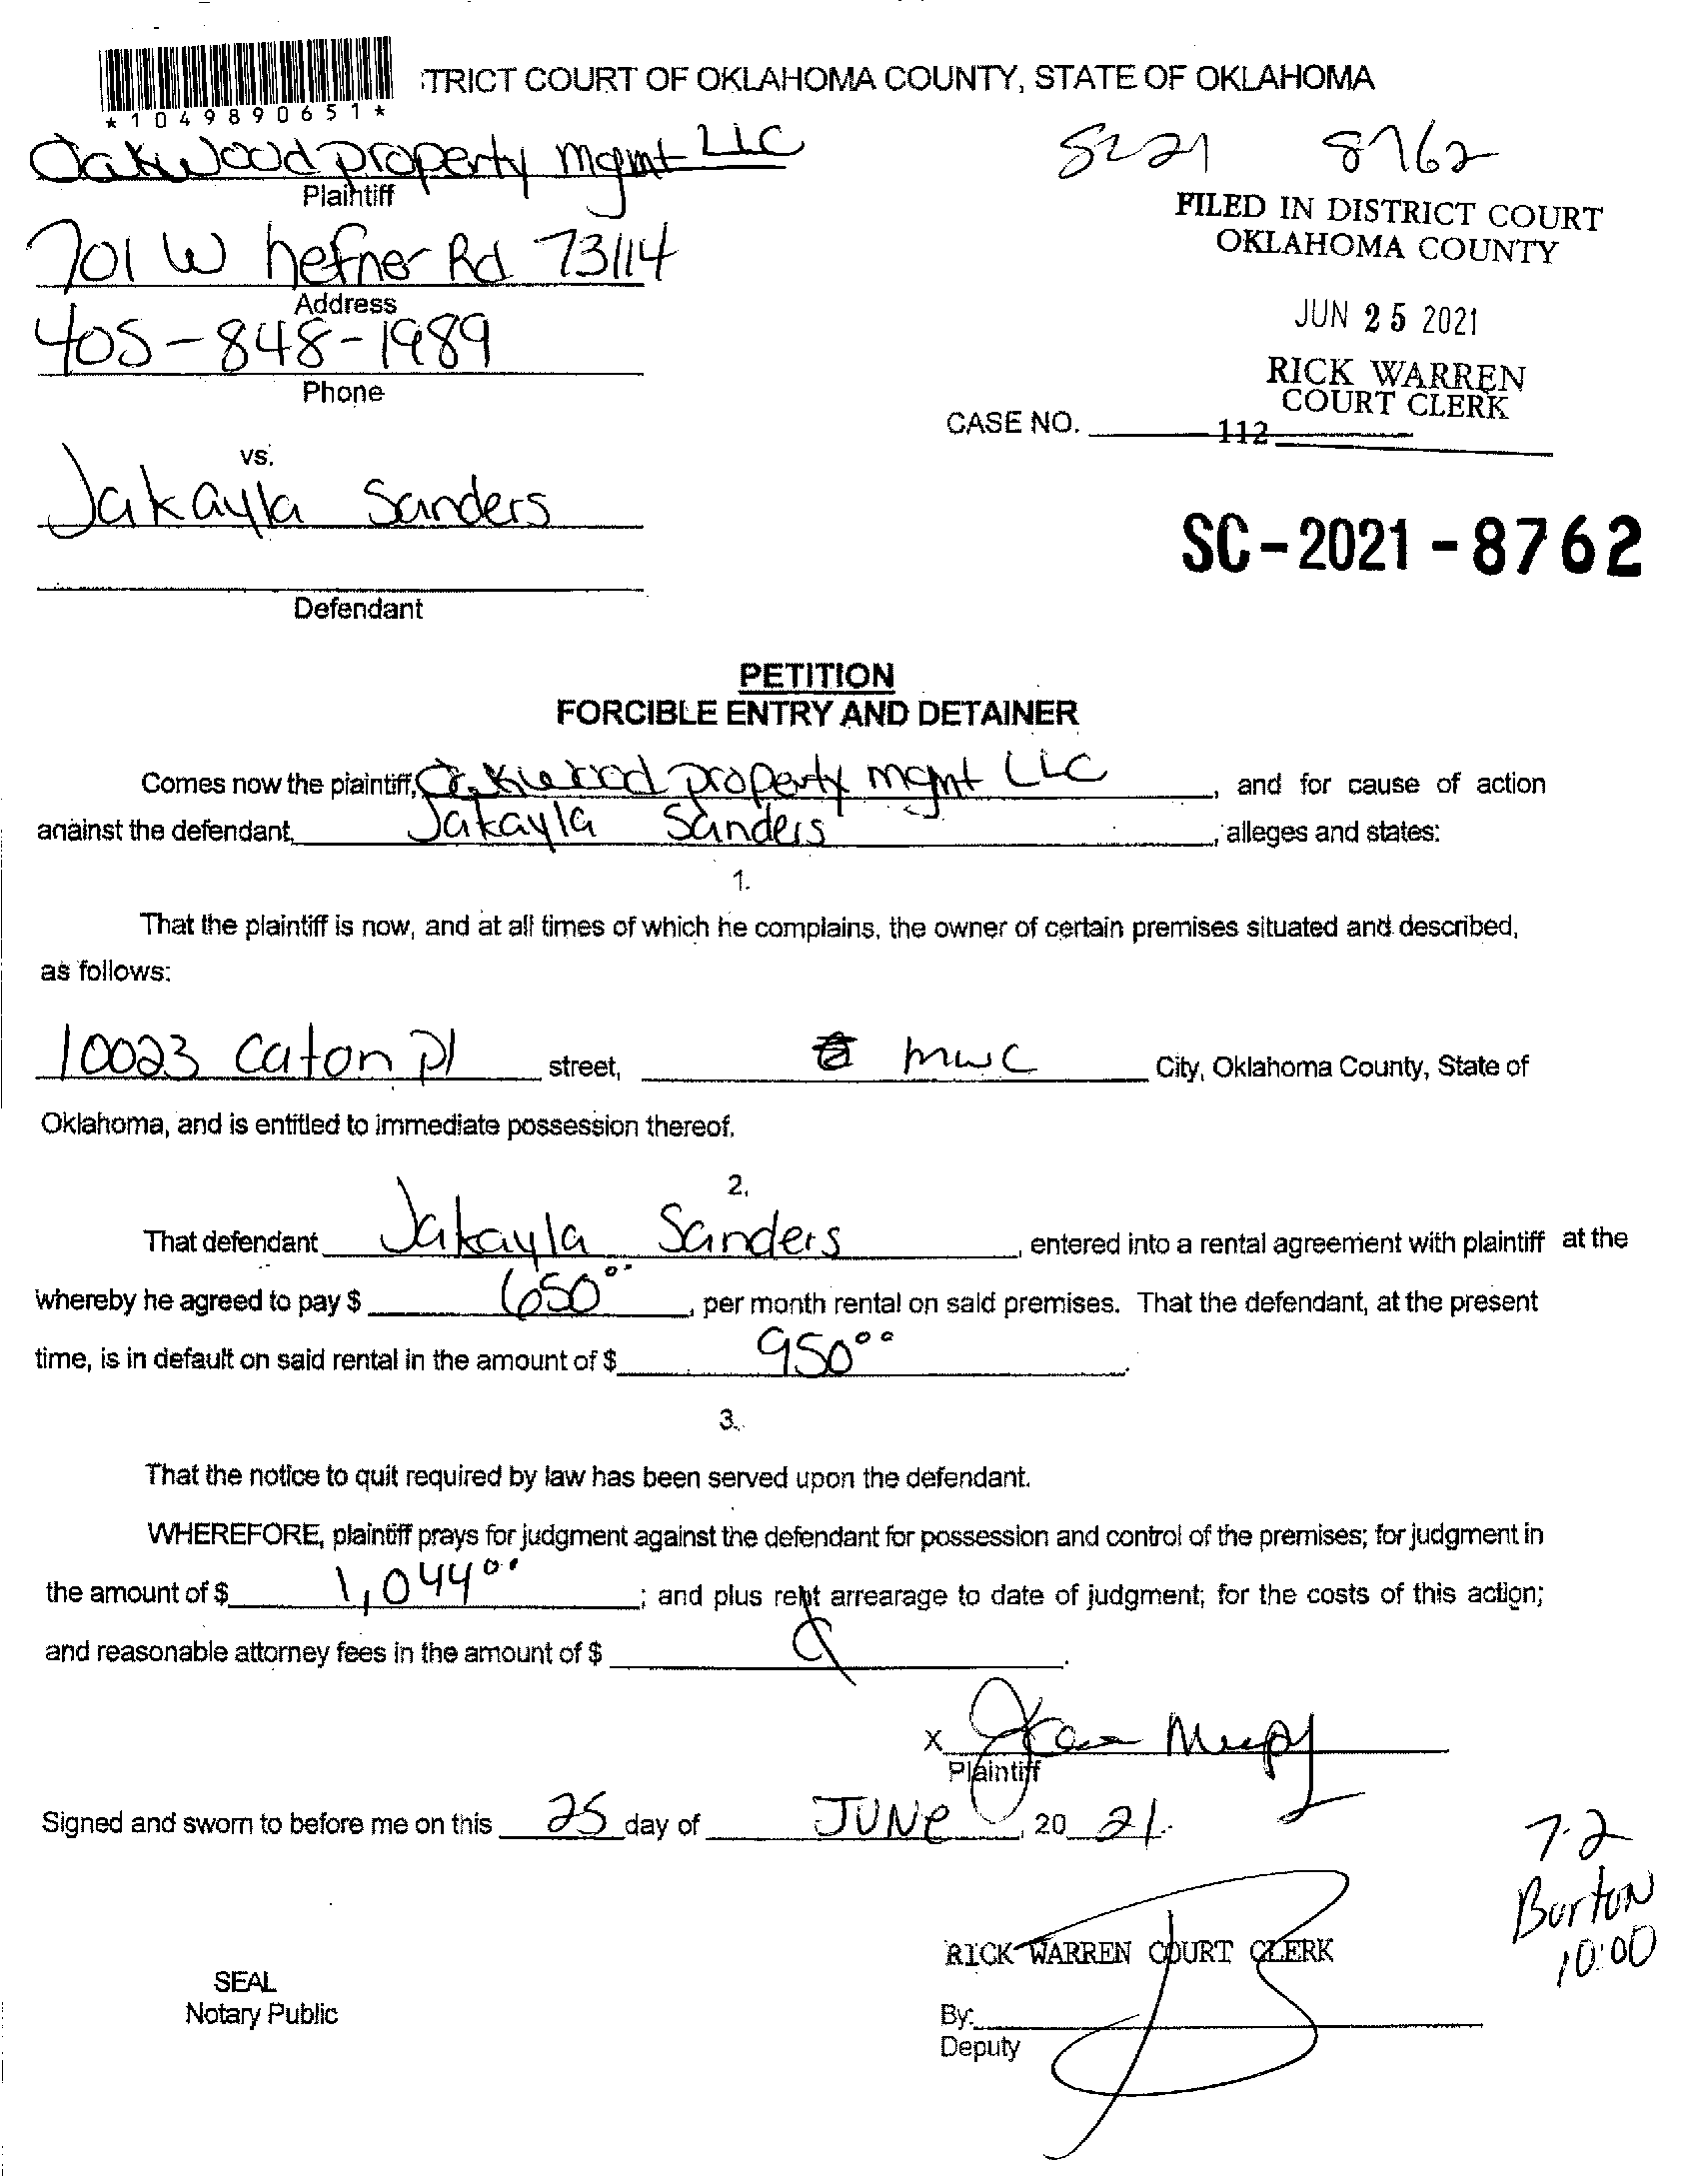 :TRICT COURT OF OKLAHOMA COUNTY, STATE OF OKLAHOMA
*1049890651*
Oakwood property mgmt LLC
Plaintiff
SC21 8762
FILED IN DISTRICT COURT
OKLAHOMA COUNTY
701 W hefner Rd 73114
Address
JUN 25 2021
405-848-1989
Phone
RICK WARREN
COURT CLERK
CASE NO. 112
vs.
Jakayla Sanders
SC-2021-8762
Defendant
PETITION
FORCIBLE ENTRY AND DETAINER
Comes now the plaintiff, Oakwood property mgmt LLC, and for cause of action
against the defendant, Jakayla Sanders, alleges and states:
1.
That the plaintiff is now, and at all times of which he complains, the owner of certain premises situated and described,
as follows:
10023 Caton Pl street, mwc City, Oklahoma County, State of
Oklahoma, and is entitled to immediate possession thereof.
2.
That defendant Jakayla Sanders, entered into a rental agreement with plaintiff at the
whereby he agreed to pay $ 650 00, per month rental on said premises. That the defendant, at the present
time, is in default on said rental in the amount of $ 950 00.
3.
That the notice to quit required by law has been served upon the defendant.
WHEREFORE, plaintiff prays for judgment against the defendant for possession and control of the premises; for judgment in
the amount of $ 1,044 00; and plus rent arrearage to date of judgment; for the costs of this action;
and reasonable attorney fees in the amount of $ .
X
Plaintiff
Signed and sworn to before me on this 25 day of JUNe, 20 21.
7-2
Burton
10:00
RICK WARREN COURT CLERK
SEAL
Notary Public
By:
Deputy